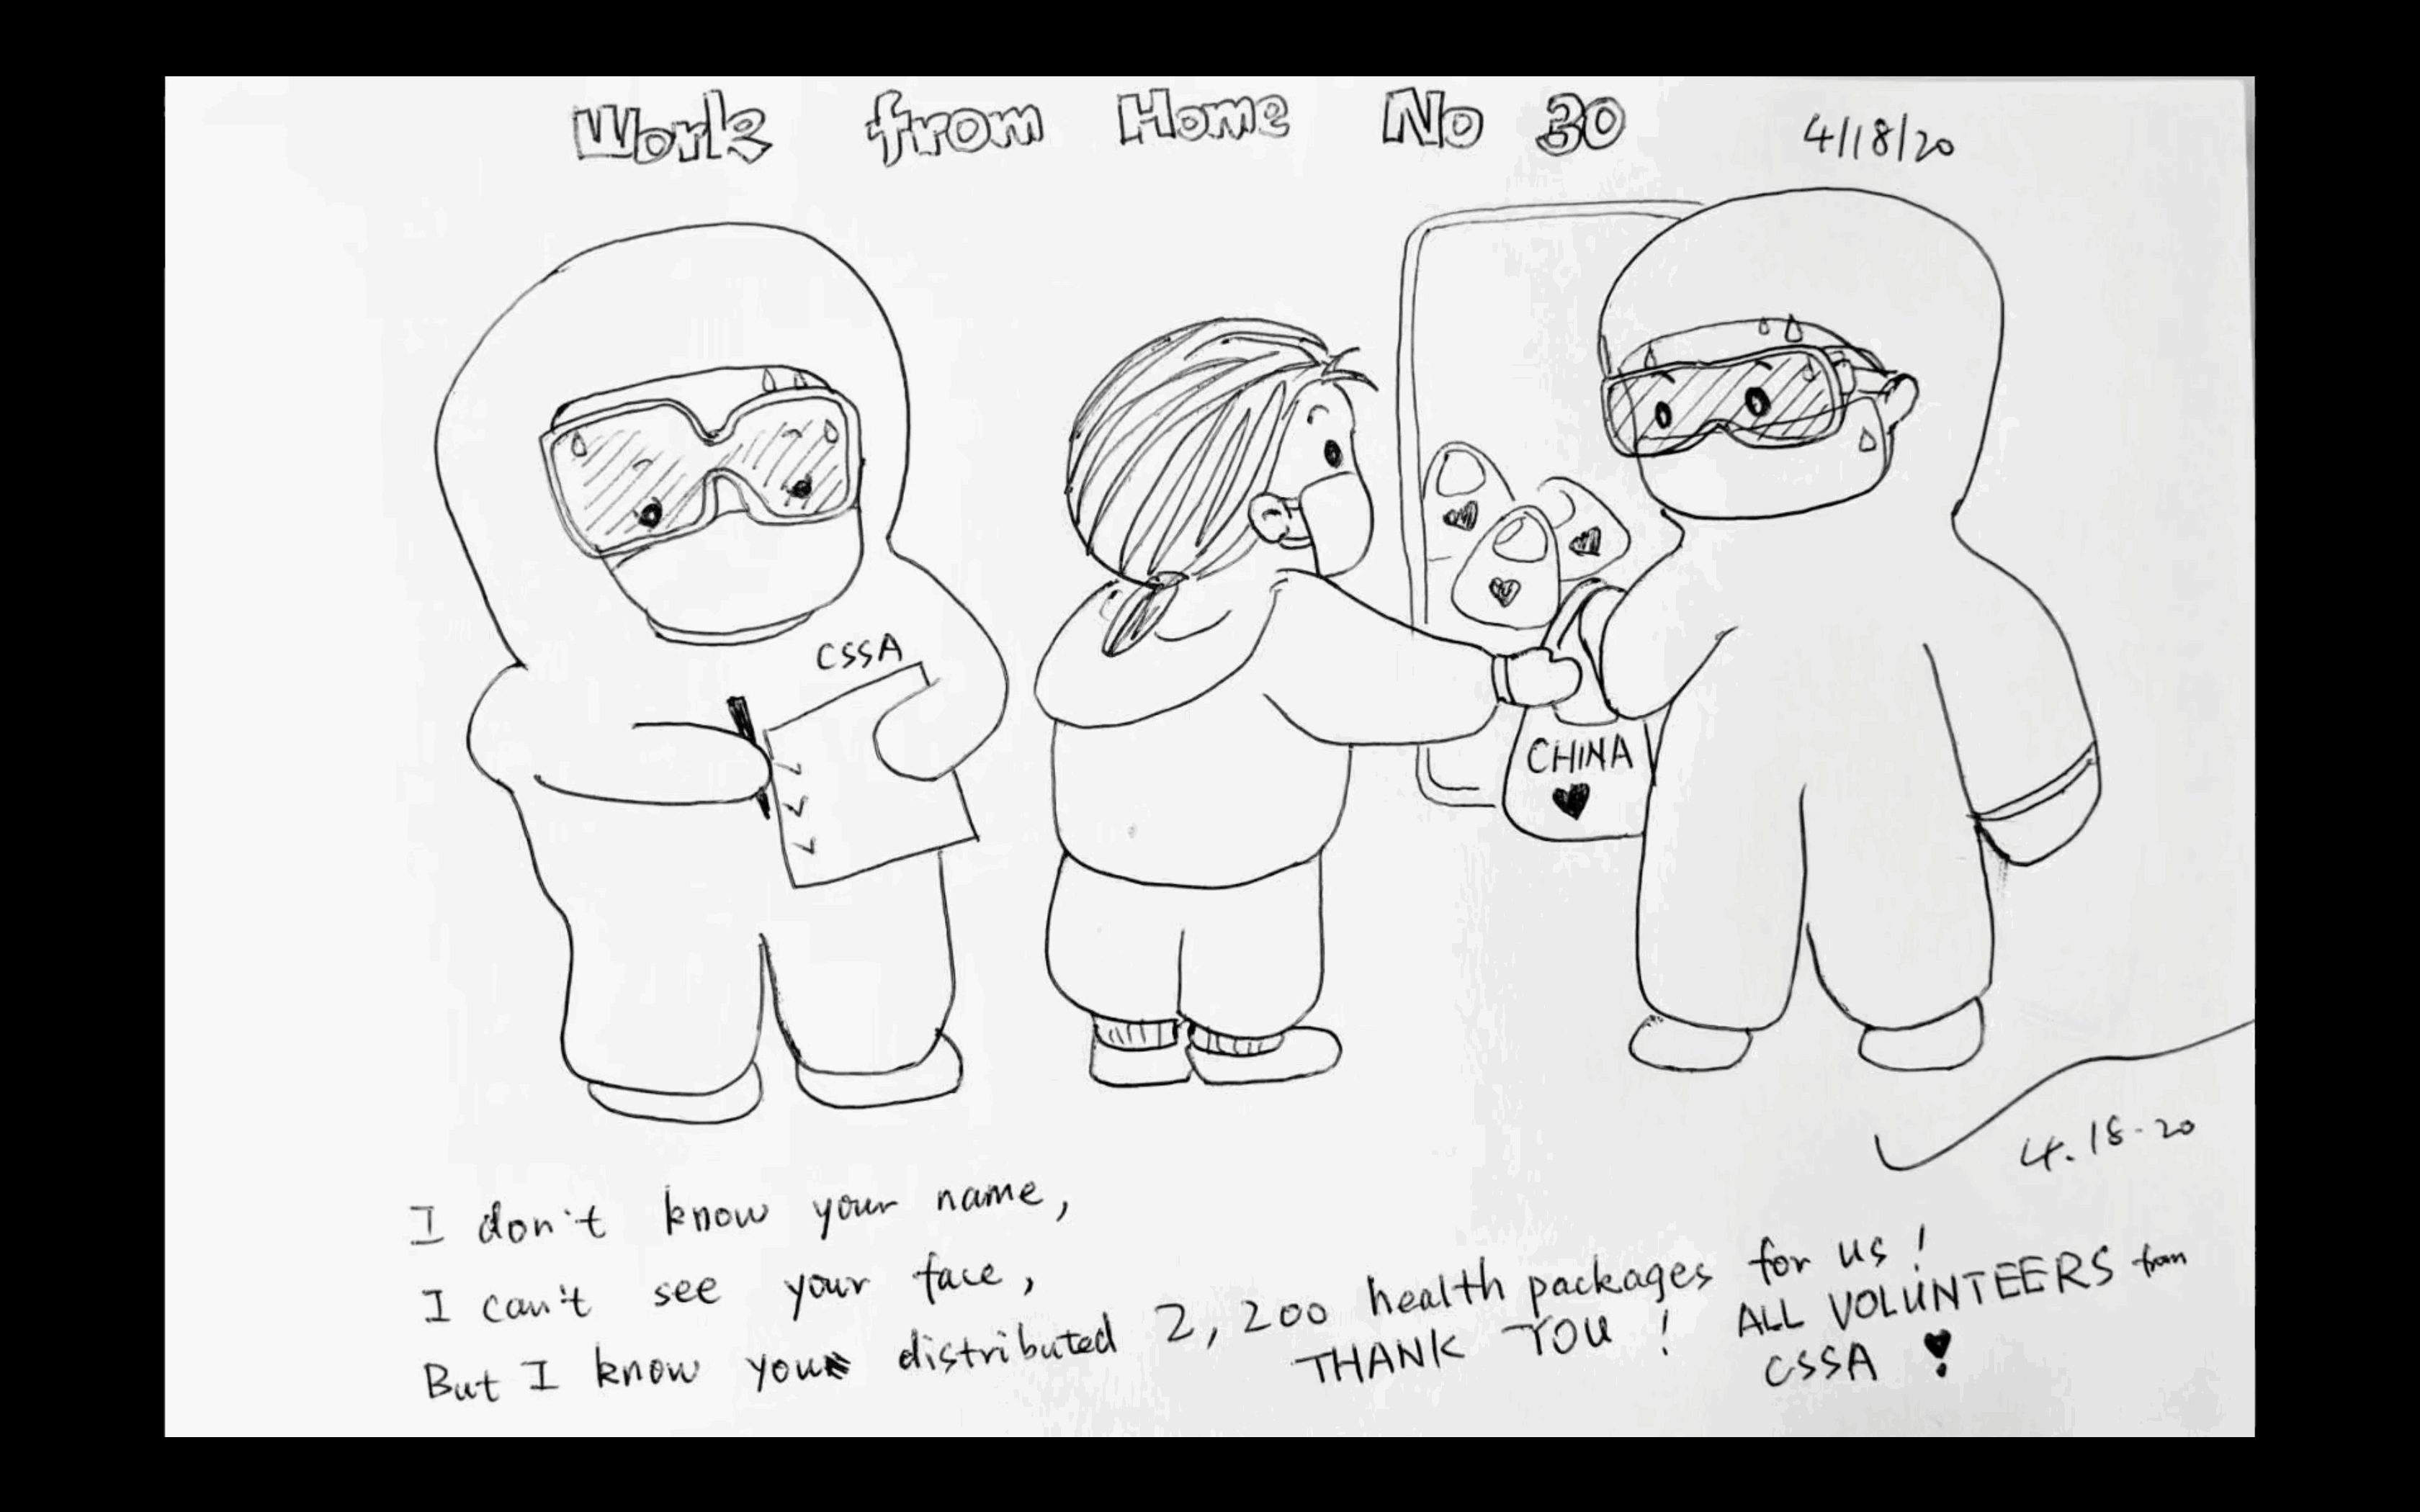 Work from Home No 30 4/18/20
CSSA
CHINA
4.18-20
I don't know your name,
I can't see your face,
But I know you distributed 2,200 health packages for us!
THANK YOU! ALL VOLUNTEERS from
CSSA